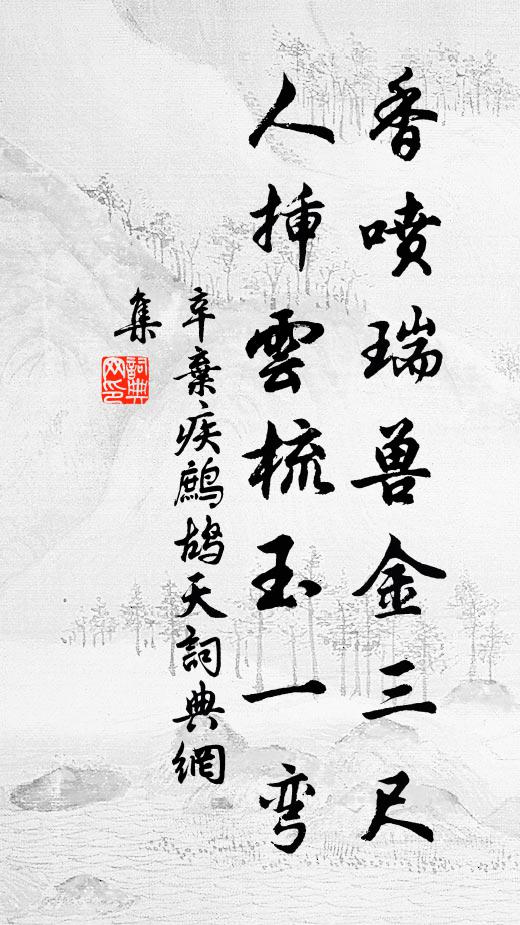 香噴瑞兽金三尺
人揷雲梳玉一弯
辛棄疾鷓鴣天詞典網
集
詞典网印